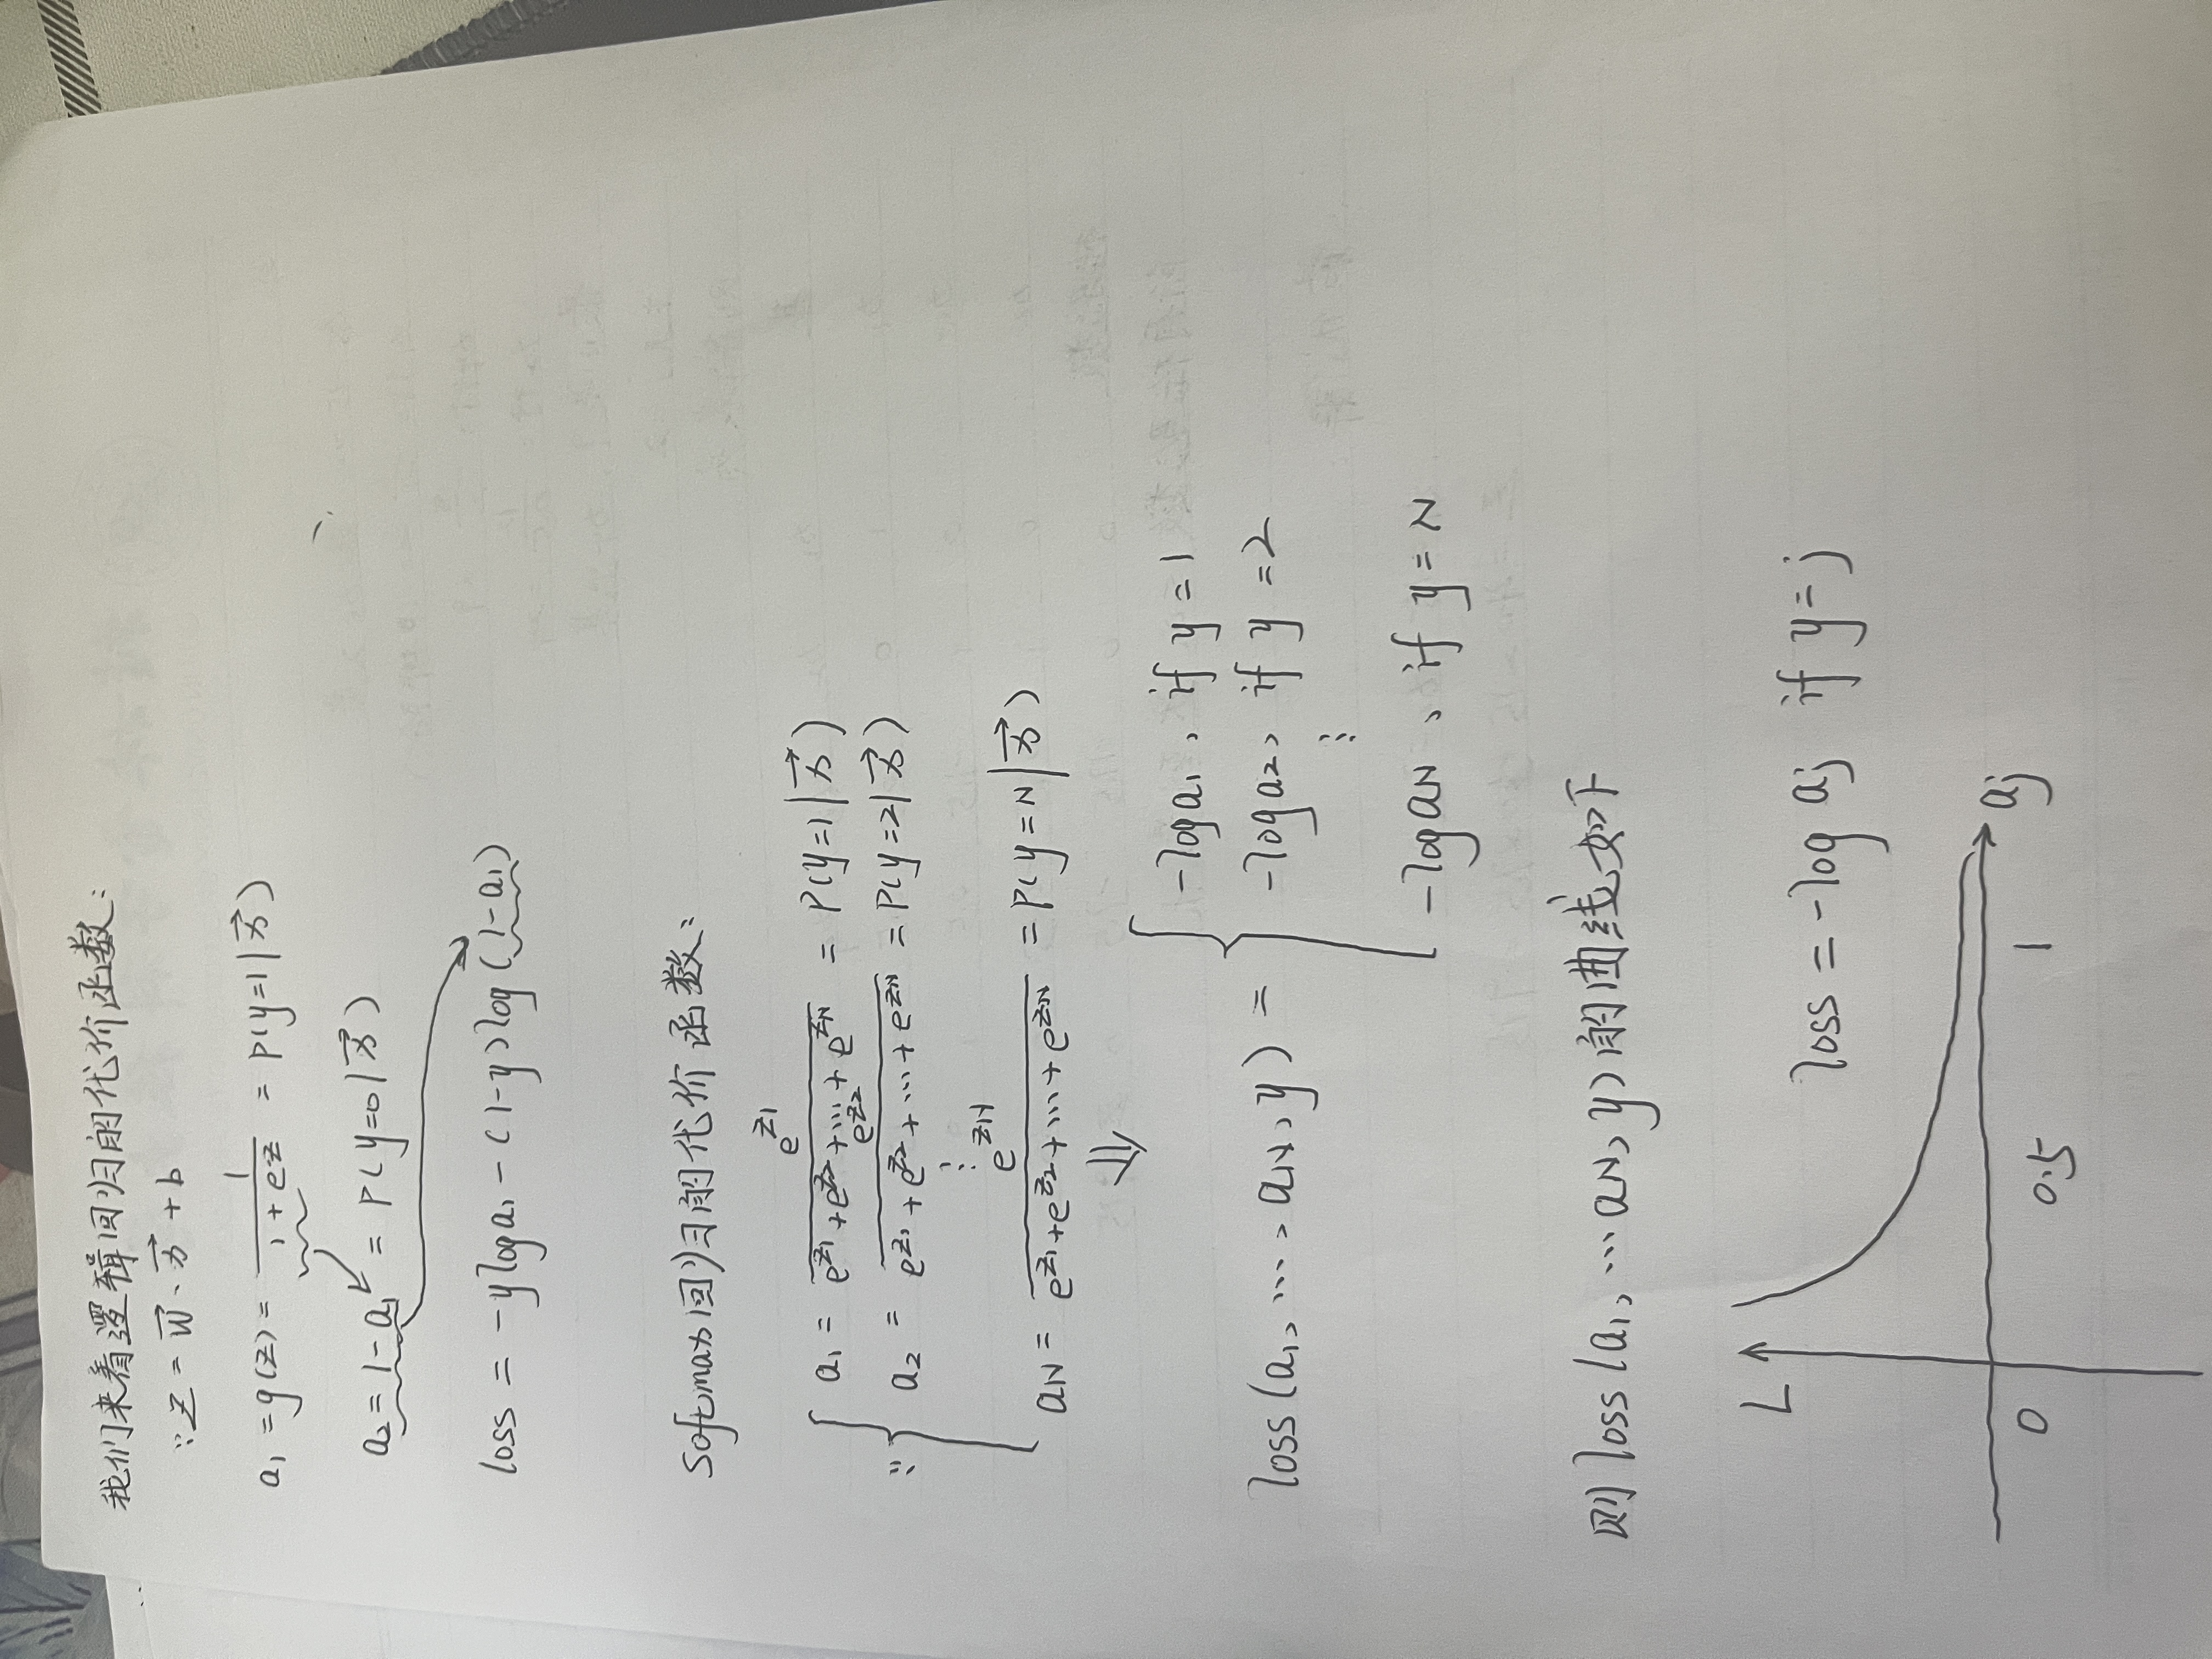 我们来看逻辑回归的代价函数:
∵ z = w⃗ · x⃗ + b
a₁ = g(z) = 1/(1+e^z) = P(y=1|x⃗)
a₂ = 1-a₁ = P(y=0|x⃗)
loss = -yloga₁ - (1-y)log(1-a₁)
Softmax回归的代价函数:
∵ { a₁ = e^z₁/(e^z₁+e^z₂+…+e^zN) = P(y=1|x⃗)
a₂ = e^z₂/(e^z₁+e^z₂+…+e^zN) = P(y=2|x⃗)
⋮
aN = e^zN/(e^z₁+e^z₂+…+e^zN) = P(y=N|x⃗)
⇓
loss(a₁, …, aN, y) = { -loga₁, if y=1
-loga₂, if y=2
⋮
-logaN, if y=N
则loss(a₁, …aN, y)的曲线如下
L
loss = -log aj if y=j
0 0.5 1 aj